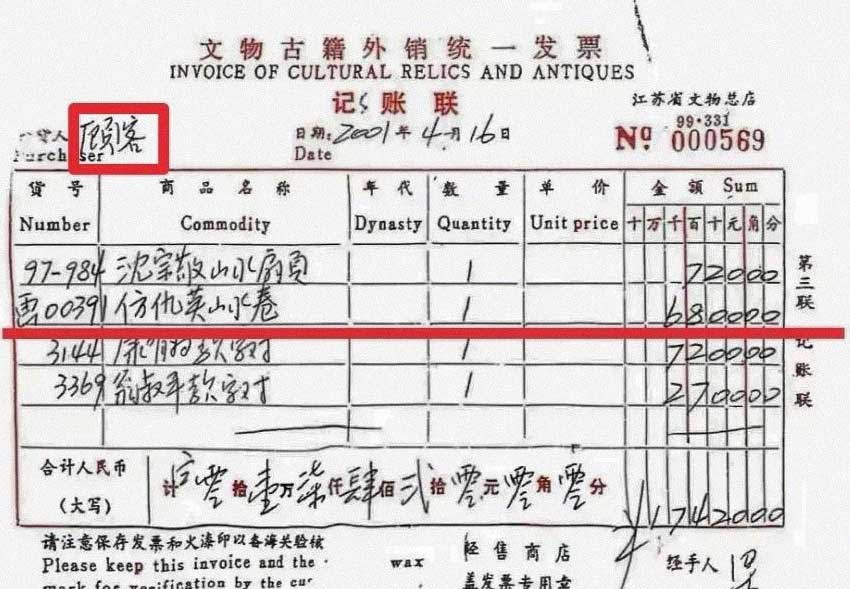 文物古籍外销统一发票
INVOICE OF CULTURAL RELICS AND ANTIQUES
记账联
江苏省文物总店
99·331
Nº 000569
顾客
日期: 2001年4月16日
Purchaser
Date
货号 商品名称 年代 数量 单价 金额 Sum
Number Commodity Dynasty Quantity Unit price 十万千百十元角分
97-984 沈宗敬山水扇頁 1 72000
00391 仿仇英山水卷 1 680000
3144 款字对 1 720000
3369 翁叔平款字对 1 270000
第三联 记账联
合计人民币
(大写)
计 零拾壹万柒仟肆佰贰拾零元零角零分
¥1742000
请注意保存发票和火漆印以备海关验核
Please keep this invoice and the wax
mark for verification by the
经售商店
盖发票专用章
经手人